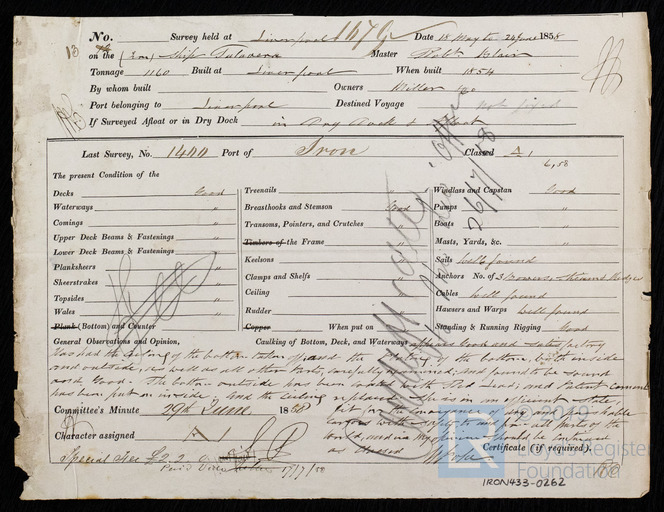 No. Survey held at Liverpool 1679 Date 18 May to 24 June 1858
13
on the (Iron) Ship Talavera Master Robt. Blair
Tonnage 1160 Built at Liverpool When built 1854
By whom built Owners Miller & Co
Port belonging to Liverpool Destined Voyage not fixed
If Surveyed Afloat or in Dry Dock in Dry Dock & Afloat
Last Survey, No. 1444 Port of Iron Classed A 1
6,58
The present Condition of the
Decks Good
Waterways "
Comings "
Upper Deck Beams & Fastenings "
Lower Deck Beams & Fastenings "
Planksheers "
Sheerstrakes "
Topsides "
Wales "
Plank (Bottom) and Counter
Treenails "
Breasthooks and Stemson Good
Transoms, Pointers, and Crutches "
Timbers of the Frame "
Keelsons "
Clamps and Shelfs "
Ceiling "
Rudder "
Copper When put on
Windlass and Capstan Good
Pumps "
Boats "
Masts, Yards, &c. "
Sails well found
Anchors No. of 3 Bowers, Stream & Kedges
Cables well found
Hawsers and Warps well found
Standing & Running Rigging Good
General Observations and Opinion, Caulking of Bottom, Deck, and Waterways appears Good and Satisfactory
Has had the ceiling of the bottom taken up and the plating of the bottom, both inside
and outside, as well as all other parts, carefully examined, and found to be sound
and Good. The bottom outside has been coated with Red Lead, and Patent cement
has been put on inside, and the ceiling replaced. She is in efficient state,
fit for the conveyance of dry and perishable
cargoes with safety to and from all parts of the
world, and in my opinion should be continued
as classed
Committee's Minute 29th June 1858
Character assigned A 1
Certificate (if required).
Special Fee £2.2
17/7/58
26/7/58
© 2019
Lloyd's Register
Foundation
IRON433-0262